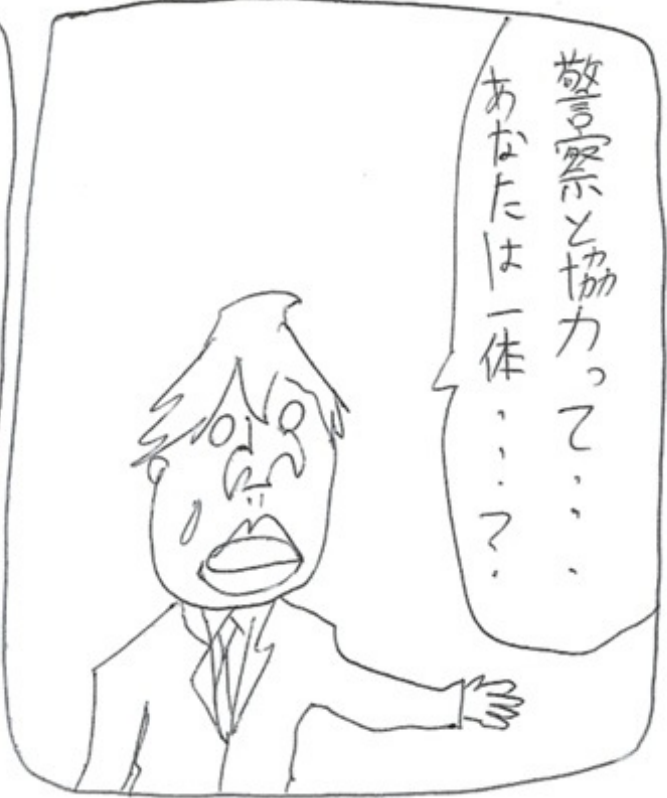 警察と協力って・・・
あなたは一体・・・?